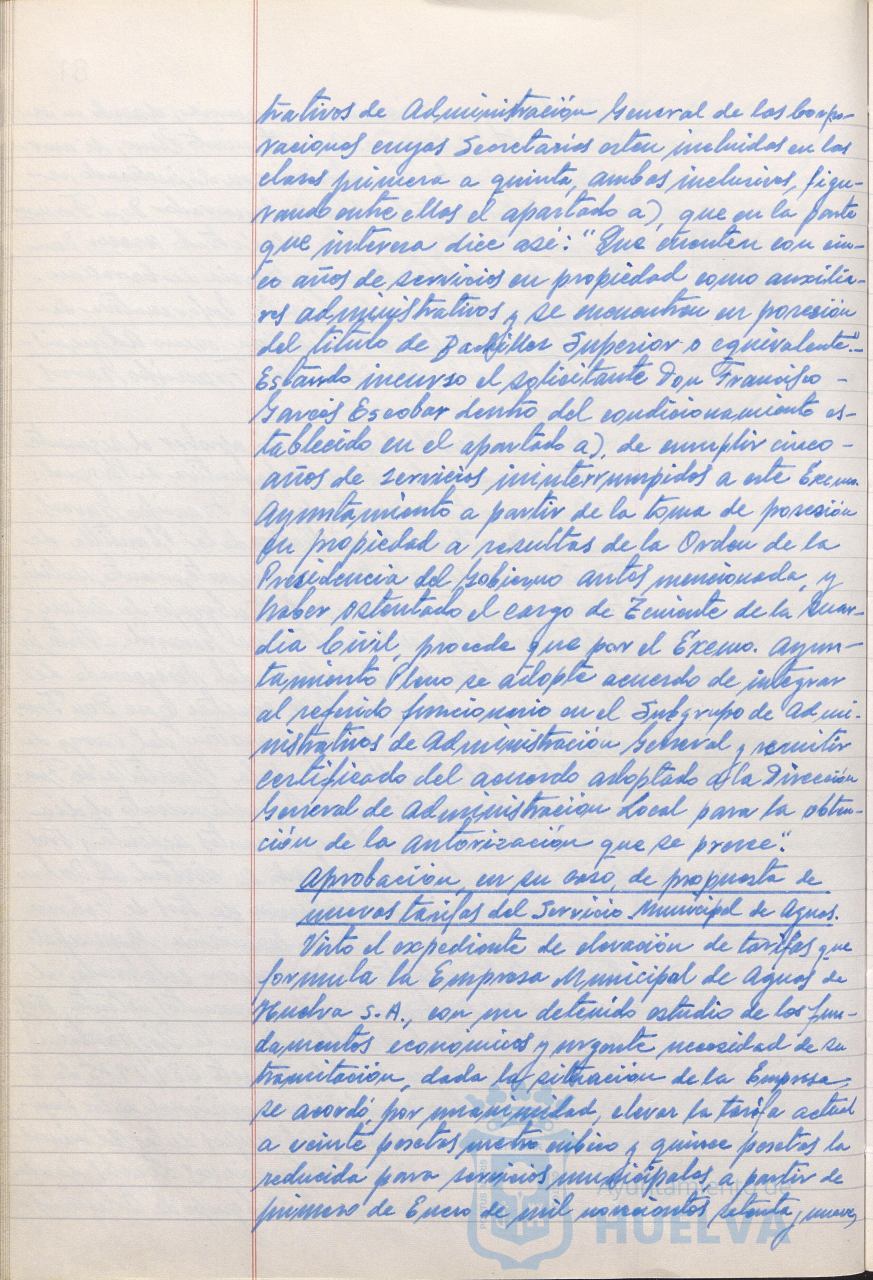 trativos de Administración General de las Corpo-
raciones cuyas Secretarías esten incluidas en las
clases primera a quinta, ambas inclusives, figu-
rando entre ellos el apartado a), que en la parte
que interesa dice asé: "Que cuenten con cin-
co años de servicios en propiedad como auxilia-
res administrativos y se encuentren en posesión
del título de Bachiller Superior o equivalente".-
Estando incurso el solicitante Don Francisco -
Garcés Escobar dentro del condicionamiento es-
tablecido en el apartado a), de cumplir cinco -
años de servicios ininterrumpidos a este Excmo.
Ayuntamiento a partir de la toma de posesión
en propiedad a resultas de la Orden de la
Presidencia del Gobierno antes mencionada, y
haber ostentado el cargo de Teniente de la Guar-
dia Civil, procede que por el Excmo. Ayun-
tamiento Pleno se adopte acuerdo de integrar
al referido funcionario en el Subgrupo de Admi-
nistrativos de Administración General y remitir
certificado del acuerdo adoptado a la Dirección
General de Administración Local para la obten-
ción de la autorización que se precise".
Aprobación, en su caso, de propuesta de
nuevas tarifas del Servicio Municipal de Aguas.
Visto el expediente de elevación de tarifas que
formula la Empresa Municipal de Aguas de
Huelva S.A., con un detenido estudio de los fun-
damentos económicos y urgente necesidad de su
tramitación, dada la situación de la Empresa,
se acordó, por unanimidad, elevar la tarifa actual
a veinte pesetas metro cúbico y quince pesetas la
reducida para servicios municipales a partir de
primero de Enero de mil novecientos setenta y nueve,
Ayuntamiento de
HUELVA